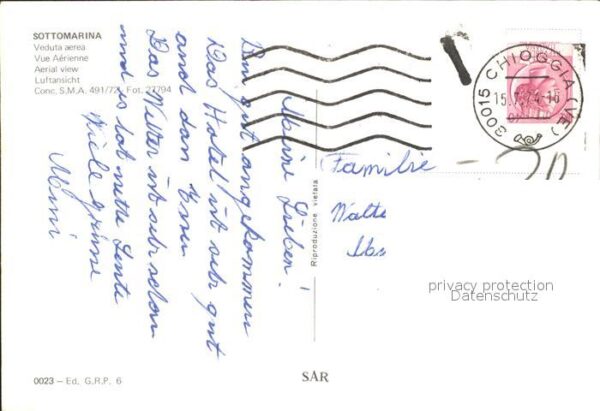 SOTTOMARINA
Veduta aerea
Vue Aérienne
Aerial view
Luftansicht
Conc. S.M.A. 491/72 Fot. 27794
Meine Lieben!
Bin gut angekommen
Das Hotel ist sehr gut
und dan
Das Wetter ist sehr schön
und is hat nette Leute
Viele grüsse
Mimi
Riproduzione vietata
30015 CHIOGGIA (VE)
Familie
privacy protection
Datenschutz
0023 – Ed. G.R.P. 6
SAR